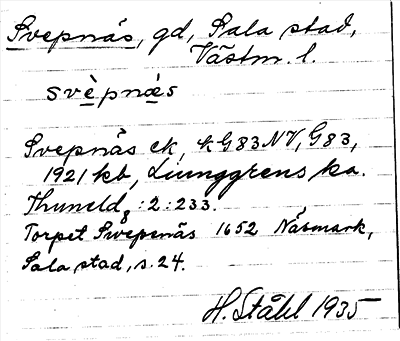 Svepnäs, gd, Sala stad,
Västm. l.
svèpnæs
Svepnäs ek, k G83 NV, G83,
1921 kb, Ljunggrens ka.
Thuneld, :2:233.
Torpet Swepenäs 1652 Näsmark,
Sala stad, s. 24.
H. Ståhl 1935